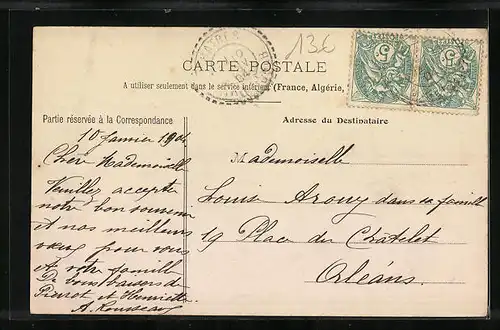 13€
CARTE POSTALE
A utiliser seulement dans le service intérieur (France, Algérie,
5
5
Partie réservée à la Correspondance
Adresse du Destinataire
10 Janvier 1904
Chère Mademoiselle
Veuillez accepter
notre bon souvenir
et nos meilleurs
vœux pour vous
et votre famille
De bons baisers de
Pierrot et Henriette
A. Rousseau
Mademoiselle
Louis Arony dans sa famille
19 Place du Châtelet
Orléans.